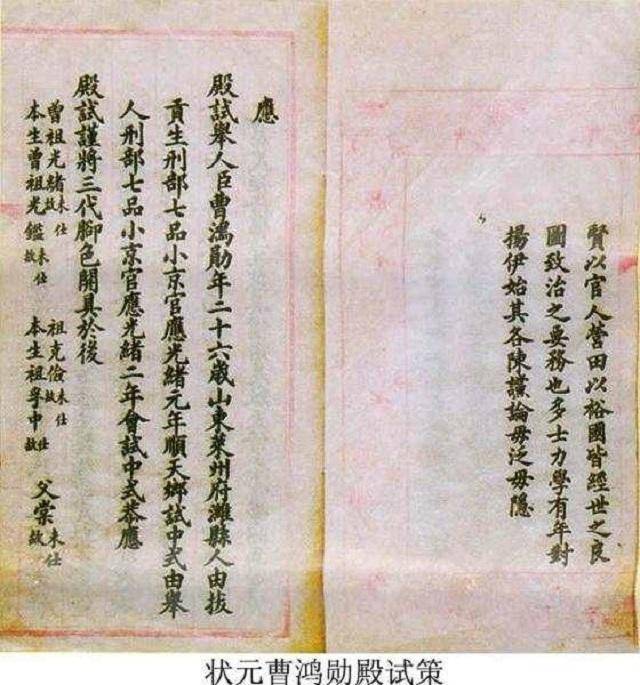 賢以官人營田以裕國皆經世之良
圖致治之要務也多士力學有年對
揚伊始其各陳讜論毋泛毋隱
應
殿試舉人臣曹鴻勛年二十六歲山東萊州府濰縣人由拔
貢生刑部七品小京官應光緒元年順天鄉試中式由舉
人刑部七品小京官應光緒二年會試中式恭應
殿試謹將三代腳色開具於後
曾祖光緒未仕故 祖克儉未仕故 父棠未仕故
本生曾祖光鑑未仕故 本生祖孚中仕故
状元曹鸿勋殿试策